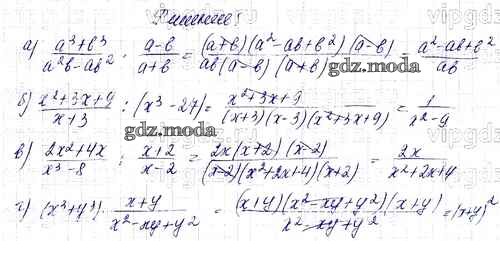 Решение:
а) (a³+b³)/(a²b−ab²) : (a−b)/(a+b) = (a+b)(a²−ab+b²)(a−b)/(ab(a−b)(a+b)) = (a²−ab+b²)/(ab)
б) (x²+3x+9)/(x+3) : (x³−27) = (x²+3x+9)/((x+3)(x−3)(x²+3x+9)) = 1/(x²−9)
в) (2x²+4x)/(x³−8) : (x+2)/(x−2) = 2x(x+2)(x−2)/((x−2)(x²+2x+4)(x+2)) = 2x/(x²+2x+4)
г) (x³+y³)·(x+y)/(x²−xy+y²) = (x+y)(x²−xy+y²)(x+y)/(x²−xy+y²) = (x+y)²
gdz.moda
gdz.moda